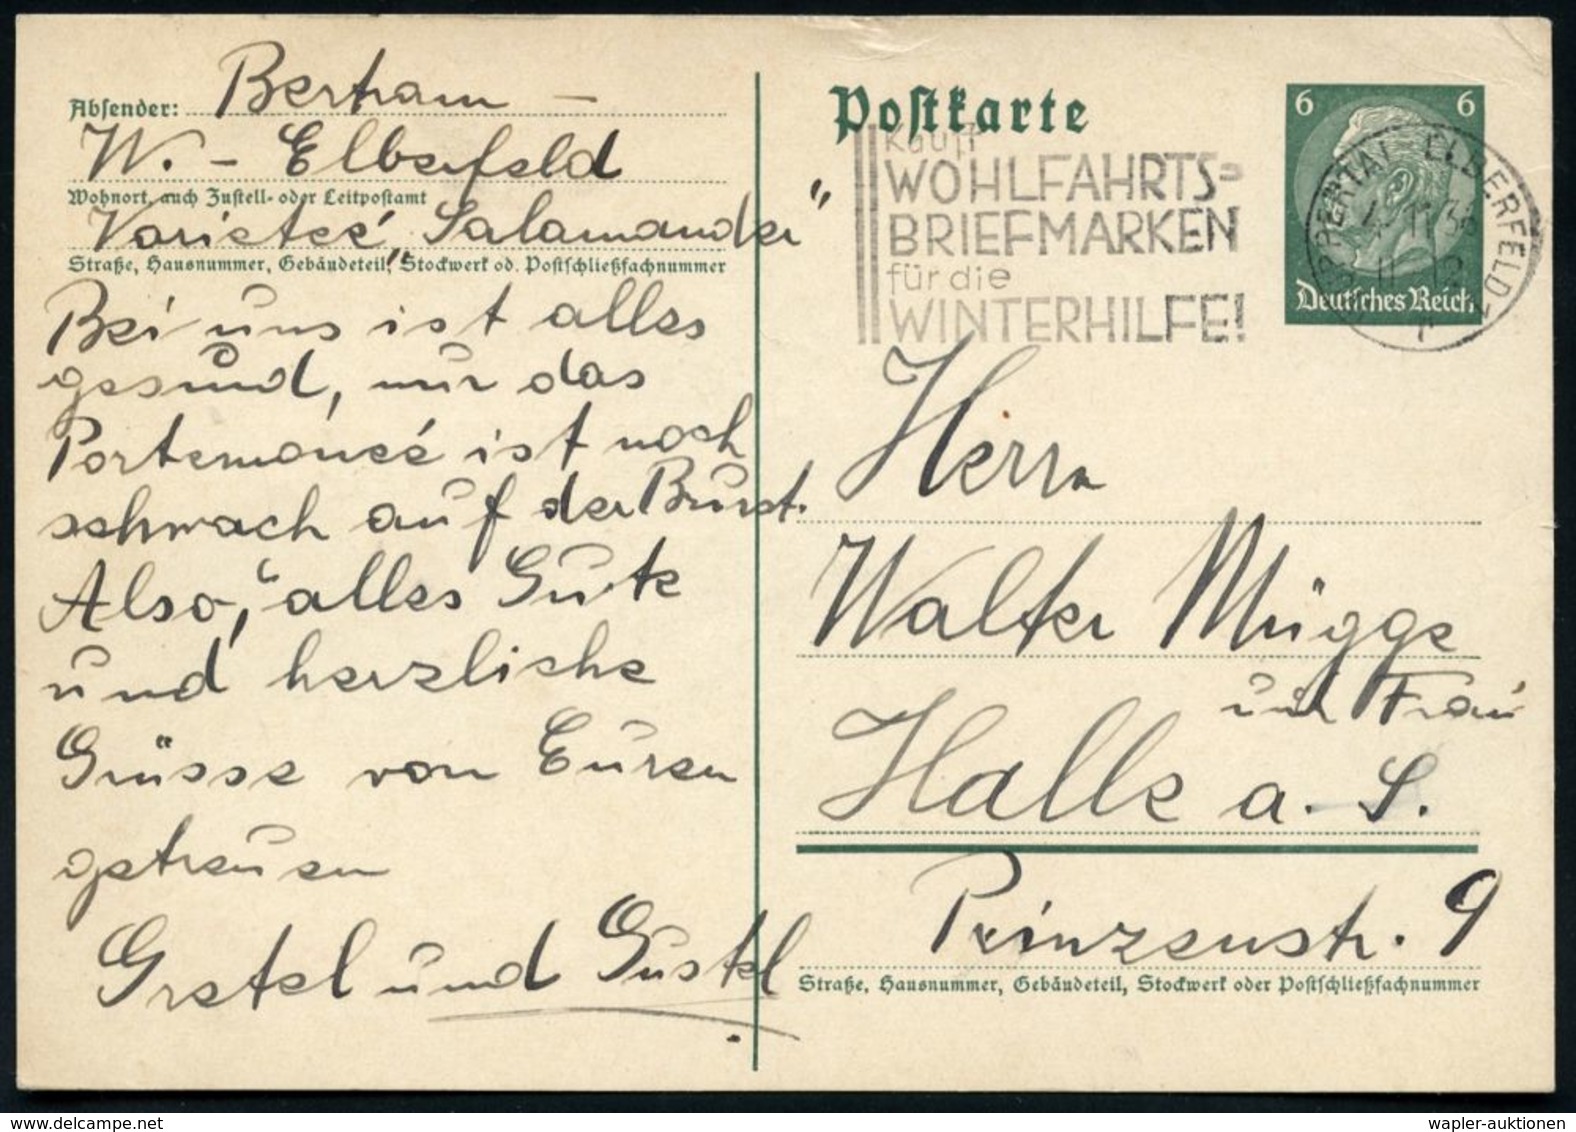 Absender: Bertram –
W. – Elberfeld
Wohnort, auch Zustell- oder Leitpostamt
Varieteé „Salamander"
Straße, Hausnummer, Gebäudeteil, Stockwerk od. Postschließfachnummer
Bei uns ist alles
gesund, nur das
Portemoneé ist noch
schwach auf der Brust.
Also, "alles Gute
und herzliche
Grüsse von Euren
getreuen
Gretel und Gustel
Postkarte
Kauft
WOHLFAHRTS=
BRIEFMARKEN
für die
WINTERHILFE!
6 6
Deutsches Reich
WUPPERTAL-ELBERFELD 1
Herrn
Walter Mügge
und Frau
Halle a. S.
Prinzenstr. 9
Straße, Hausnummer, Gebäudeteil, Stockwerk oder Postschließfachnummer
wapler-auktionen